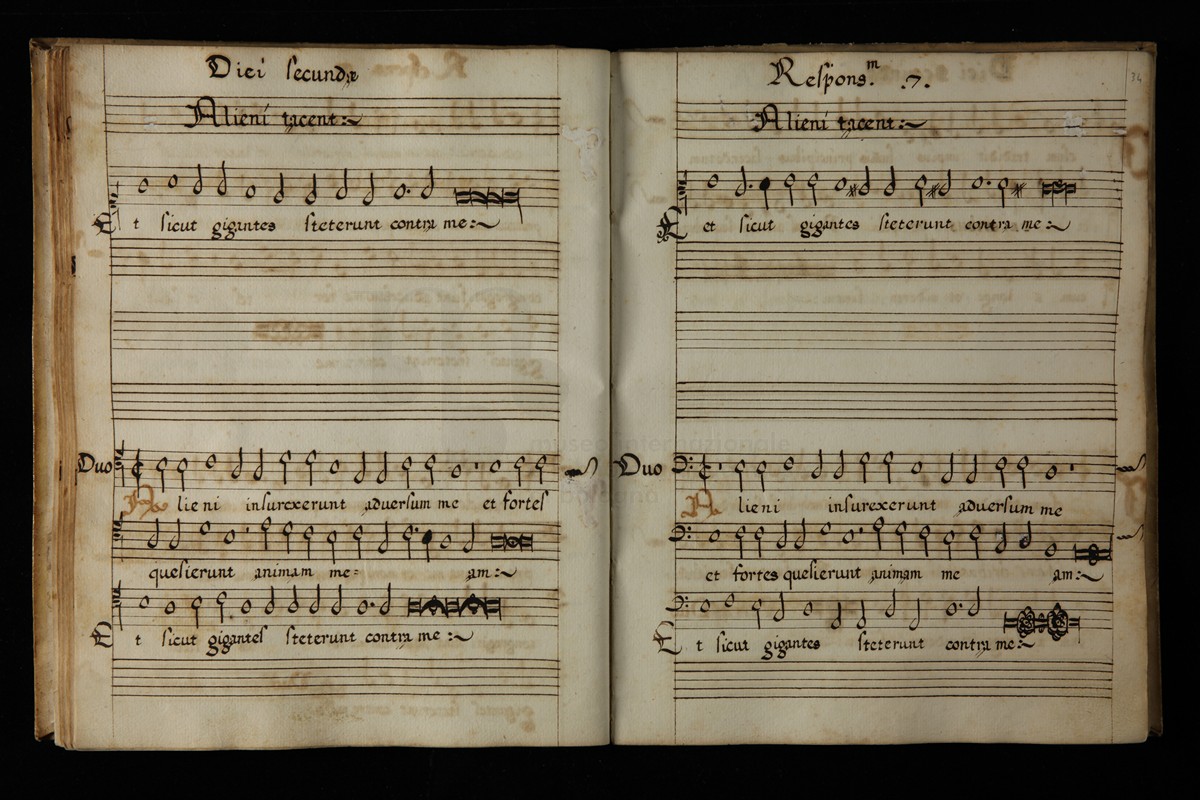 Diei secundæ
Alieni tacent:~
Et sicut gigantes steterunt contra me:~
Duo
Alieni insurexerunt adversum me et fortes
quesierunt animam me= am:~
Et sicut gigantes steterunt contra me:~
Respons.m .7.
34
Alieni tacent:~
Et et sicut gigantes steterunt contra me:~
Duo
Alieni insurexerunt adversum me
et fortes quesierunt animam me am:~
Et sicut gigantes steterunt contra me:~
museo internazionale
bologna